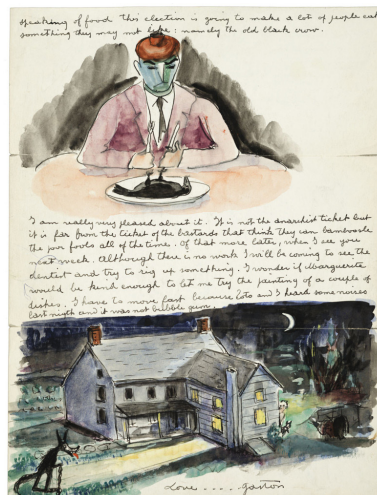 Speaking of food this election is going to make a lot of people eat
something they may not like: namely the old black crow.
I am really very pleased about it. It is not the anarchist ticket but
it is far from the ticket of the bastards that think they can bamboozle
the poor fools all of the time. Of that more later, when I see you
next week. Although there is no work I will be coming to see the
dentist and try to rig up something. I wonder if Marguerite
would be kind enough to let me try the painting of a couple of
dishes. I have to move fast because Loto and I heard some noises
last nigth and it was not bubble gum
Love .... Gaston